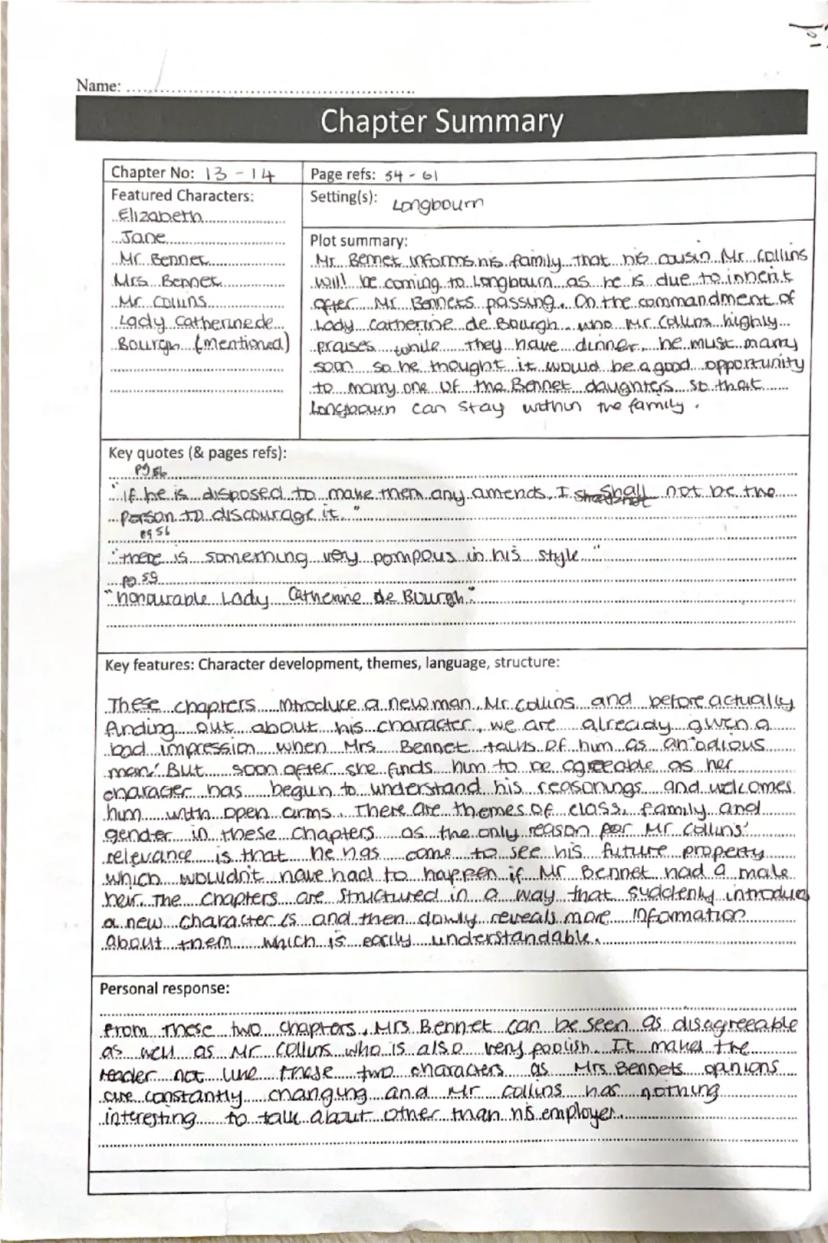 Name:
Chapter Summary
Chapter No: 13 - 14
Page refs: 54 - 61
Featured Characters:
Elizabeth
Jane
Mr Bennet
Mrs Bennet
Mr Collins
Lady Catherine de
Bourgh (mentioned)
Setting(s): Longbourn
Plot summary:
Mr Bennet informs his family that his cousin Mr Collins
will be coming to Longbourn as he is due to inherit
after Mr Bennets passing. On the commandment of
Lady Catherine de Bourgh who Mr Collins highly
praises while they have dinner, he must marry
soon so he thought it would be a good opportunity
to marry one of the Bennet daughters so that
Longbourn can stay within the family.
Key quotes (& pages refs):
pg 56
"if he is disposed to make them any amends, I shall not be the
person to discourage it."
pg 56
"there is something very pompous in his style"
pg 59
"honourable Lady Catherine de Bourgh"
Key features: Character development, themes, language, structure:
These chapters introduce a new man, Mr Collins and before actually
finding out about his character, we are already given a
bad impression when Mrs Bennet talks of him as an 'odious
man'. But soon after she finds him to be agreeable as her
character has begun to understand his reasonings and welcomes
him with open arms. There are themes of class, family and
gender in these chapters as the only reason for Mr Collins'
relevance is that he has come to see his future property
which wouldn't have had to happen if Mr Bennet had a male
heir. The chapters are structured in a way that suddenly introduces
a new character/s and then slowly reveals more information
about them which is easily understandable.
Personal response:
From these two chapters, Mrs Bennet can be seen as disagreeable
as well as Mr Collins who is also very foolish. It makes the
reader not like these two characters as Mrs Bennets opinions
are constantly changing and Mr Collins has nothing
interesting to talk about other than his employer.